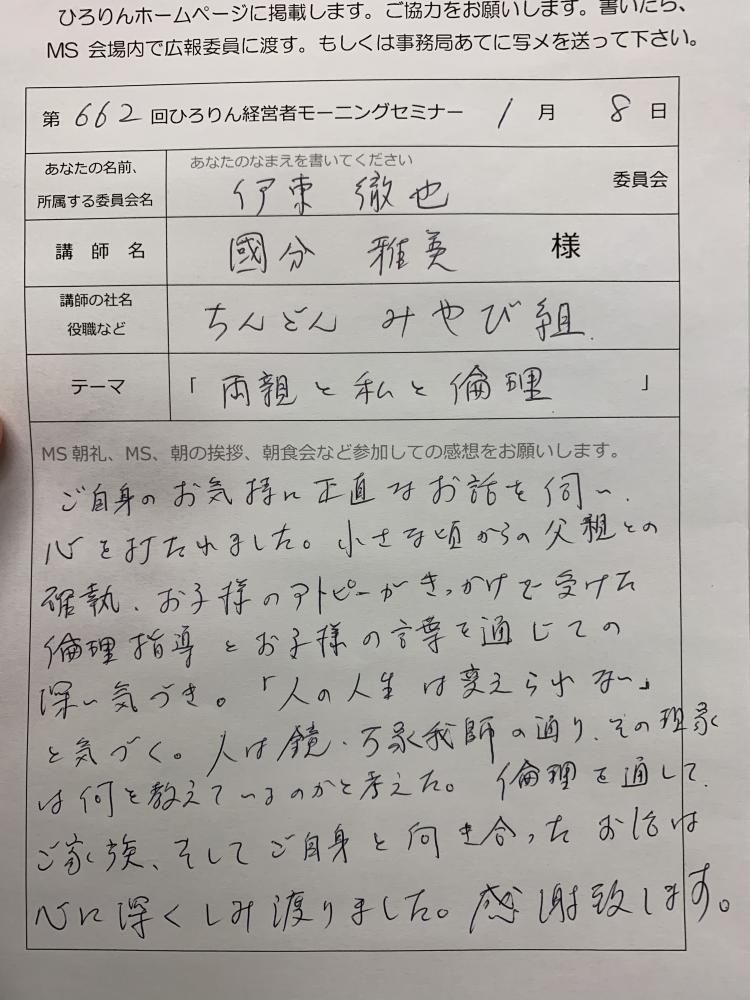 ひろりんホームページに掲載します。ご協力をお願いします。書いたら、
MS 会場内で広報委員に渡す。もしくは事務局あてに写メを送って下さい。
第 662 回ひろりん経営者モーニングセミナー 1 月 8 日
あなたの名前、
所属する委員会名
あなたのなまえを書いてください
伊東 徹也 委員会
講 師 名 國分 雅美 様
講師の社名
役職など
ちんどん みやび組
テーマ 「両親と私と倫理 」
MS 朝礼、MS、朝の挨拶、朝食会など参加しての感想をお願いします。
ご自身のお気持に正直なお話を伺い、
心を打たれました。小さな頃からの父親との
確執、お子様のアトピーがきっかけで受けた
倫理指導とお子様の言葉を通じての
深い気づき。「人の人生は変えられない」
と気づく。人は鏡、万象我師の通り、その現象
は何を教えているのかと考えた。倫理を通して、
ご家族、そしてご自身と向き合ったお話は
心に深くしみ渡りました。感謝致します。